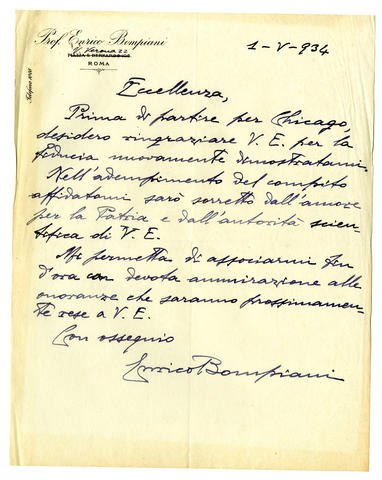 Prof. Enrico Bompiani
V. Verona 22
ROMA
1-V-934
Eccellenza,
Prima di partire per Chicago,
desidero ringraziare V. E. per la
fiducia nuovamente dimostratami.
Nell'adempimento del compito
affidatomi sarò sorretto dall'amore
per la Patria e dall'autorità scien-
tifica di V. E.
Mi permetta di associarmi fin
d'ora con devota ammirazione alle
onoranze che saranno prossimamen-
te rese a V. E.
Con ossequio
Enrico Bompiani